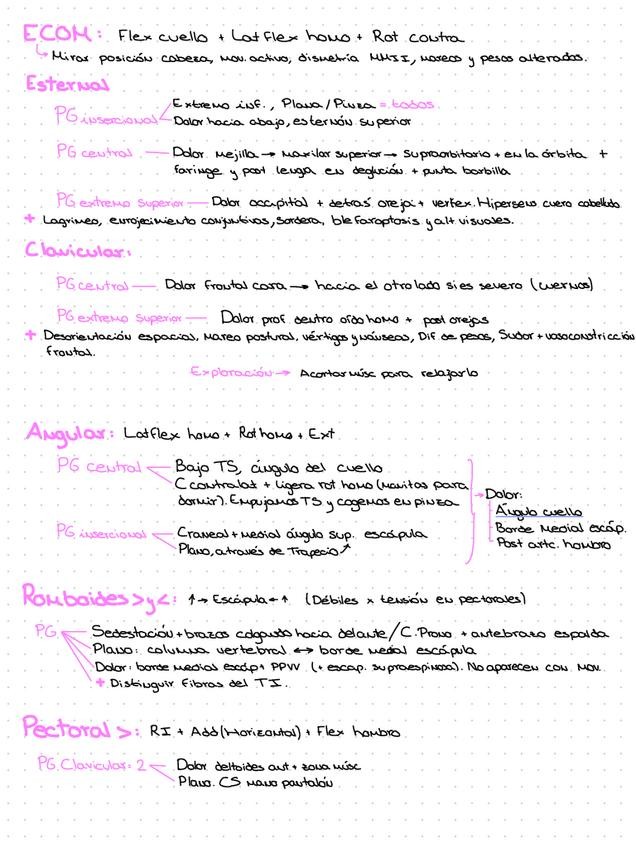 ECOM: Flex cuello + Lat Flex homo + Rot contra
↳ Mirar posición cabeza, mov. activo, dismetría MMII, mareos y pesos alterados.
Esternal
PG insercional Extremo inf., Plana/Pinza = todos.
Dolor hacia abajo, esternón superior
PG central — Dolor mejilla → maxilar superior → supraorbitario + en la órbita +
faringe y post lengua en deglución + punta barbilla
PG extremo superior — Dolor occipital + detrás oreja + vertex. Hipersens cuero cabelludo
+ Lagrimeo, enrojecimiento conjuntivas, sordera, blefaroptosis y alt visuales.
Clavicular:
PG central — Dolor frontal cara → hacia el otro lado si es severo (cuernos)
PG extremo superior — Dolor prof. dentro oído homo + post orejas
+ Desorientación espacial, mareo postural, vértigos y náuseas, Dif de pesos, Sudor + vasoconstricción
frontal.
Exploración → Acortar músc para relajarlo
Angular: Lat flex homo + Rot homo + Ext
PG central Bajo TS, ángulo del cuello
C contralat + ligera rot homo (manitas para
dormir). Empujamos TS y cogemos en pinza
PG insercional Craneal + medial ángulo sup. escápula
Plano, a través de Trapecio ↗
→ Dolor:
Ángulo cuello
Borde medial escáp.
Post artc. hombro
Romboides > y <: ↑→ Escápula ←↑ (Débiles x tensión en pectorales)
PG Sedestación + brazos colgando hacia delante / C. Prono + antebrazo espalda
Plano: columna vertebral ↔ borde medial escápula
Dolor: borde medial escáp + PPVV (+ escap. supraespinosa). No aparecen con mov.
+ Distinguir fibras del TI.
Pectoral >: RI + Add (Horizontal) + Flex hombro
PG. Clavicular: 2 Dolor deltoides ant + zona músc
Plano. CS mano pantalón